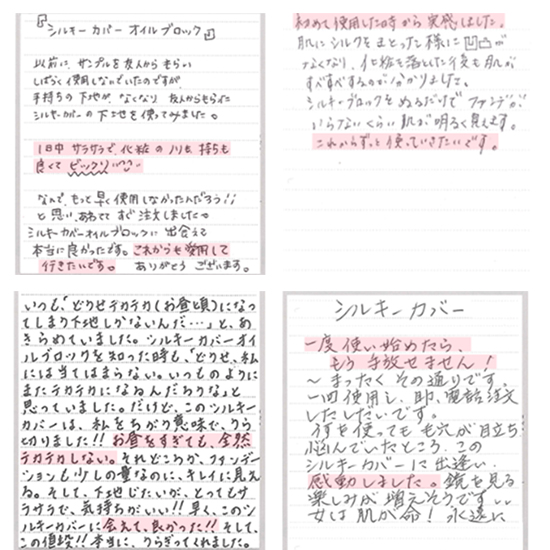 『シルキーカバー オイルブロック』
以前に、サンプルを友人からもらい
しばらく使用しないでいたのですが
手持ちの下地が、なくなり 友人からもらった
シルキーカバーの下地を使ってみました。
1日中 サラサラで、化粧のノリも 持ちも
良くて ビックリ!!
なんで、もっと早く使用しなかったんだろう!!
と思い、あわてて すぐ注文しました。
シルキーカバーオイルブロックに 出会えて
本当に良かったです。これからも愛用して
行きたいです。 ありがとう ございます。
初めて使用した時から実感しました。
肌にシルクをまとった様に凹凸が
なくなり、化粧を落とした後も肌が
すべすべするのが分かりました。
シルキーブロックをぬるだけでファンデが
いらないくらい肌が明るく見えます。
これからずっと使っていきたいです。
いつも「どうせテカテカ(お昼頃)になっ
てしまう下地しかないんだ…」と、あ
きらめていました。シルキーカバーオイ
ルブロックを知った時も、「どうせ、私
には当てはまらない。いつものように
またテカテカになるんだろうな」と
思っていました。だけど、このシルキー
カバーは、私をちがう意味で、うら
切りました!!お昼をすぎても、全然
テカテカしない。それどころか、ファンデー
ションも少しの量なのに、キレイに見え
る。そして、下地じたいが、とってもサ
ラサラで、気持ちがいい!!早く、このシ
ルキーカバーに会えて、良かった!!そして、
この値段!!本当に、うらぎってくれました。
シルキーカバー
一度使い始めたら、
もう手放せません!
~まったくその通りです。
一回使用し、即、電話注文
したしだいです。
何を使っても毛穴が目立ち
悩んでいたところ、この
シルキーカバーに出逢い、
感動しました。鏡を見る
楽しみが増えそうです。
女は肌が命!永遠に